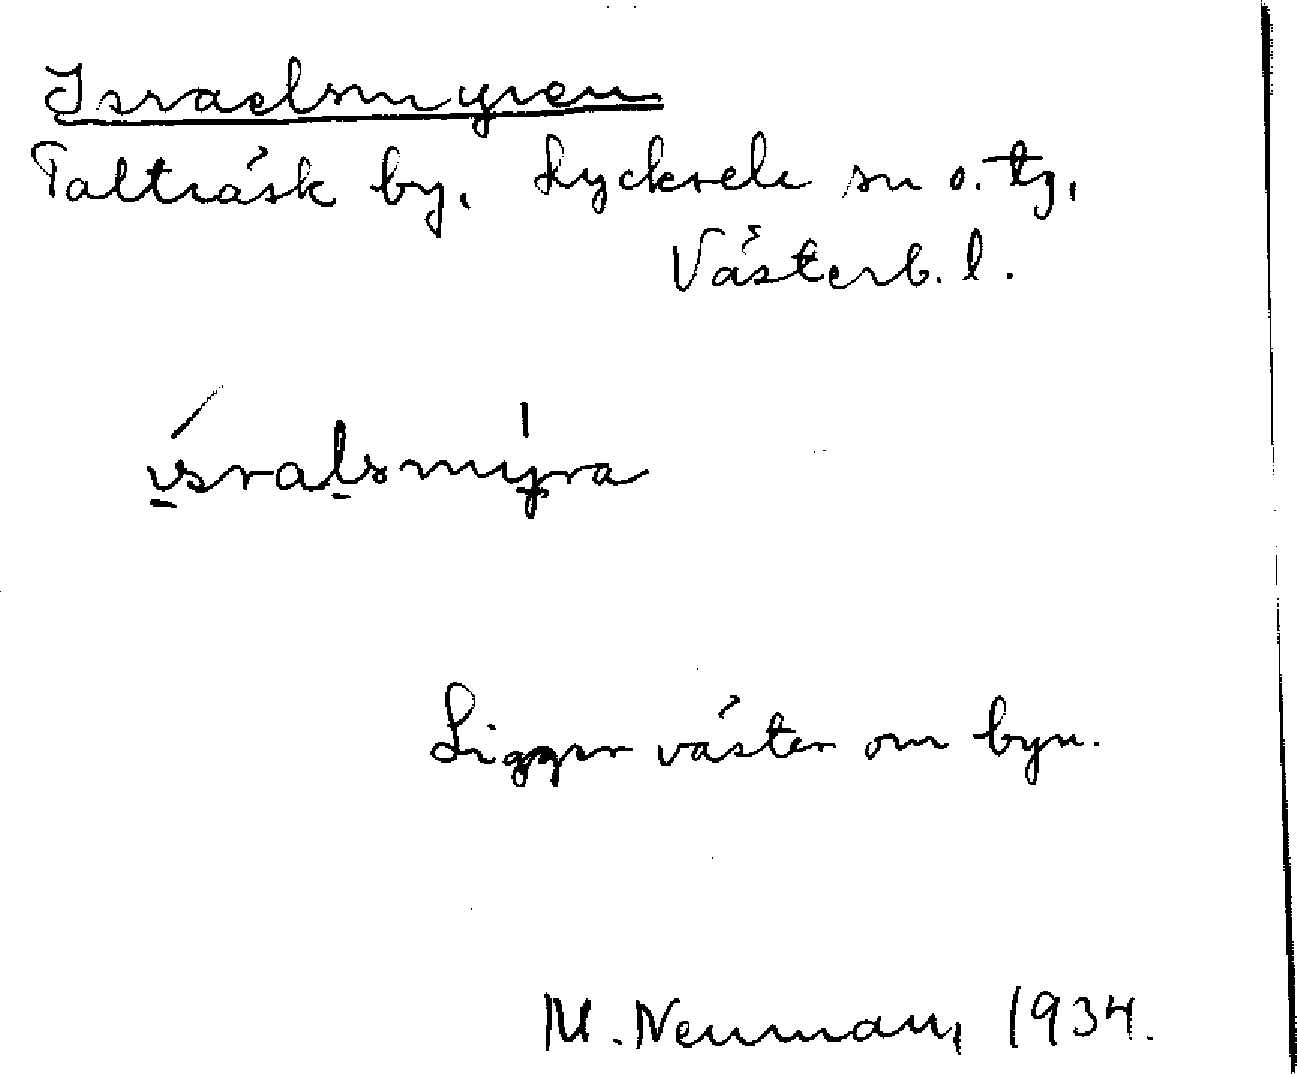 Israelsmyren
Talträsk by. Lycksele sn o. tg,
Västerb. l.
isralsmyra
Ligger väster om byn.
M. Neuman, 1934.